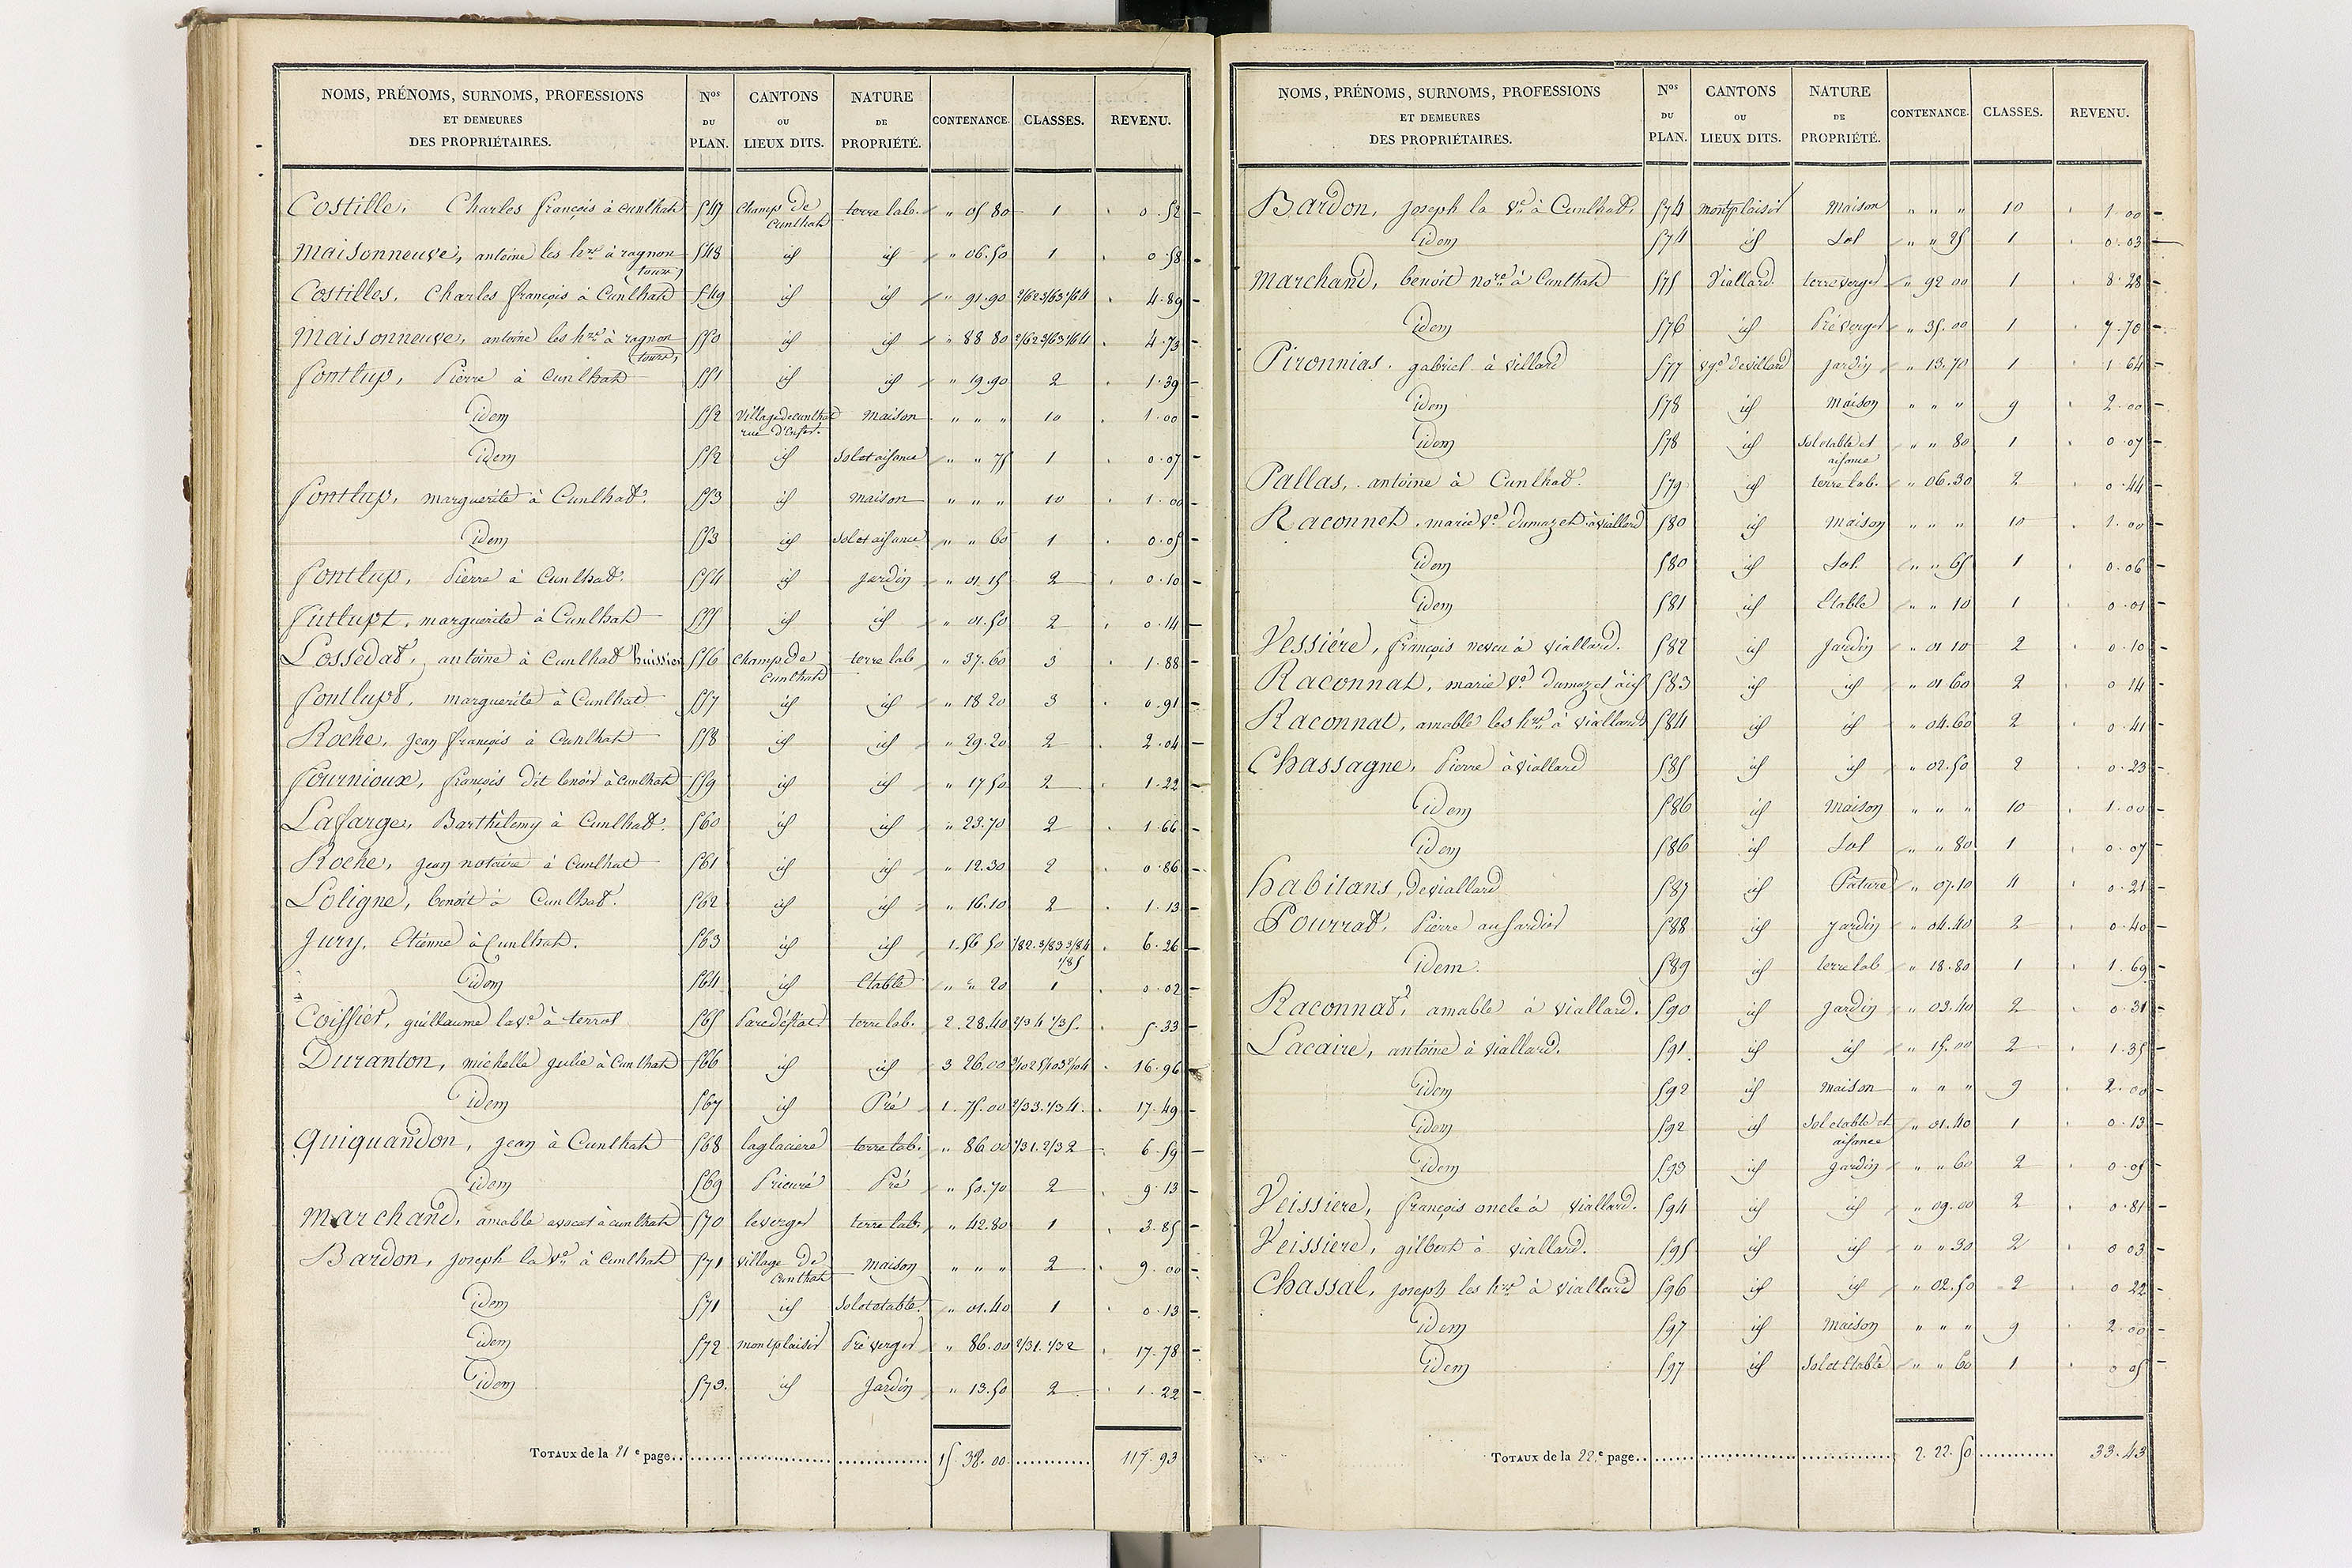 NOMS, PRÉNOMS, SURNOMS, PROFESSIONS ET DEMEURES DES PROPRIÉTAIRES. Nos DU PLAN. CANTONS OU LIEUX DITS. NATURE DE PROPRIÉTÉ. CONTENANCE. CLASSES. REVENU.
Costille, Charles françois à Cunlhat 547 Champ de Cunlhat terre lab. " 05 80 1 0.52
Maisonneuve, antoine les hrs à ragnon 548 id id " 06.50 1 0.58
Costilles, Charles françois à Cunlhat 549 id id " 91.90 4.89
Maisonneuve, antoine les hrs à ragnon 550 id id " 88 80 4.73
fontlup, Pierre à Cunlhat 551 id id " 19.90 2 1.39
idem 552 Village de cunlhat rue d'Enfer. maison " " " 10 1.00
idem 552 id sol et aisance " " 75 1 0.07
fontlup, marguerite à Cunlhat. 553 id maison " " " 10 1.00
idem 553 id sol et aisance " " 60 1 0.05
fontlup, Pierre à Cunlhat. 554 id jardin " 01.15 2 0.10
futlupt, marguerite à Cunlhat 555 id id " 01.50 2 0.14
Lossedat, antoine à Cunlhat huissier 556 Champ de Cunlhat terre lab " 37.60 3 1.88
fontlupt, marguerite à Cunlhat 557 id id " 18 20 3 0.91
Roche, jean françois à Cunlhat 558 id id " 29.20 2 2.04
fournioux, françois dit benoit à Cunlhat 559 id id " 17 50 2 1.22
Lafarge, Barthélemy à Cunlhat. 560 id id " 23.70 2 1.66
Roche, jean notaire à Cunlhat 561 id id " 12.30 2 0.86
Loligne, benoit à Cunlhat. 562 id id " 16.10 2 1.13
jury, Etienne à Cunlhat. 563 id id 1.56 50 6.26
idem 564 id Etable " " 20 1 0.02
Coissier, guillaume la ve à terrol 565 terre lab. 2.28.40 5.33
Duranton, michelle julie à Cunlhat 566 id id 3 26.00 16.96
idem 567 id Pré 1.75.00 2/33.1/34. 17.49
quiquandon, jean à Cunlhat 568 laglaciere terre lab. " 86 00 1/31.2/32 6.59
idem 569 Prieuré Pré " 50.70 2 9.13
marchand, amable avocat à cunlhat 570 leverger terre lab. " 42.80 1 3.85
Bardon, joseph la ve à cunlhat 571 village de Cunlhat maison " " " 2 9.00
idem 571 id sol et etable. " 01.40 1 0.13
idem 572 montplaisir Pré verger " 86.00 2/31.1/32 17.78
idem 573. id jardin " 13.50 2 1.22
TOTAUX de la 21e page 15.38.00 117.93
NOMS, PRÉNOMS, SURNOMS, PROFESSIONS ET DEMEURES DES PROPRIÉTAIRES. Nos DU PLAN. CANTONS OU LIEUX DITS. NATURE DE PROPRIÉTÉ. CONTENANCE. CLASSES. REVENU.
Bardon, joseph la ve à Cunlhat. 574 montplaisir maison " " " 10 1.00
idem 574 id Sol " " 25 1 0.03
marchand, benoit nore à Cunlhat 575 Viallard terre verger " 92 00 1 8.28
idem 576 id Pré verger " 35.00 1 7.70
Pironnias, gabriel à villard 577 vge de villard jardin " 13.70 1 1.64
idem 578 id maison " " " 9 2.00
idem 578 id sol etable et aisance " " 80 1 0.07
Pallas, antoine à Cunlhat. 579 id terre lab. " 06.30 2 0.44
Raconnet, marie ve dumazet à viallard 580 id maison " " " 10 1.00
idem 580 id Sol. " " 65 1 0.06
idem 581 id Etable " " 10 1 0.01
Vessiére, françois neveu à viallard. 582 id jardin " 01 10 2 0.10
Raconnat, marie ve dumazet à id 583 id id " 01 60 2 0.14
Raconnat, amable les hrs à viallard 584 id id " 04.60 2 0.41
Chassagne, Pierre à viallard 585 id id " 02.50 2 0.23
idem 586 id maison " " " 10 1.00
idem 586 id Sol " " 80 1 0.07
habitans, de viallard 587 id Pature " 07.10 4 0.21
Pourrat, Pierre au sardier 588 id jardin " 04.40 2 0.40
idem. 589 id terre lab " 18.80 1 1.69
Raconnat, amable à viallard. 590 id jardin " 03.40 2 0.31
Lacaire, antoine à viallard. 591. id id " 15.00 2 1.35
idem 592 id maison " " " 9 2.00
idem 592 id sol etable et aisance " 01.40 1 0.13
idem 593 id jardin " " 60 2 0.05
Veissiere, françois oncle à viallard. 594 id id " 09.00 2 0.81
Veissiere, gilbert à viallard. 595 id id " " 30 2 0 03
Chassal, joseph les hrs à viallard 596 id id " 02.50 2 0 22
idem 597 id maison " " " 9 2.00
idem 597 id sol et Etable " " 60 1 0 05
TOTAUX de la 22.e page 2.22.50 33.43